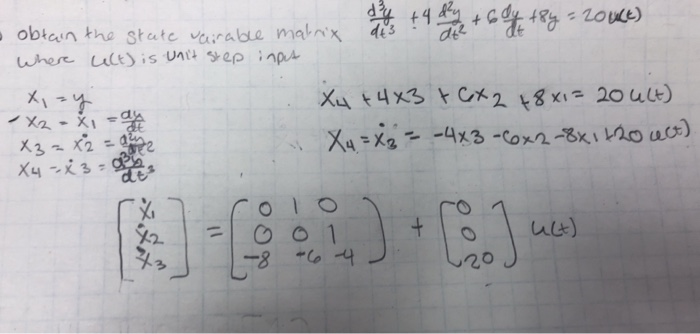 obtain the state vairable matrix d³y/dt³ + 4 d²y/dt² + 6 dy/dt + 8y = 20u(t)
where u(t) is unit step input
x1 = y
x2 = ẋ1 = dy/dt
x3 = ẋ2 = d²y/dt²
x4 = ẋ3 = d³y/dt³
x4 + 4x3 + 6x2 + 8x1 = 20u(t)
x4 = ẋ3 = -4x3 - 6x2 - 8x1 + 20u(t)
[ẋ1] = [0 1 0] + [0] u(t)
[ẋ2] [0 0 1] [0]
[ẋ3] [-8 -6 -4] [20]